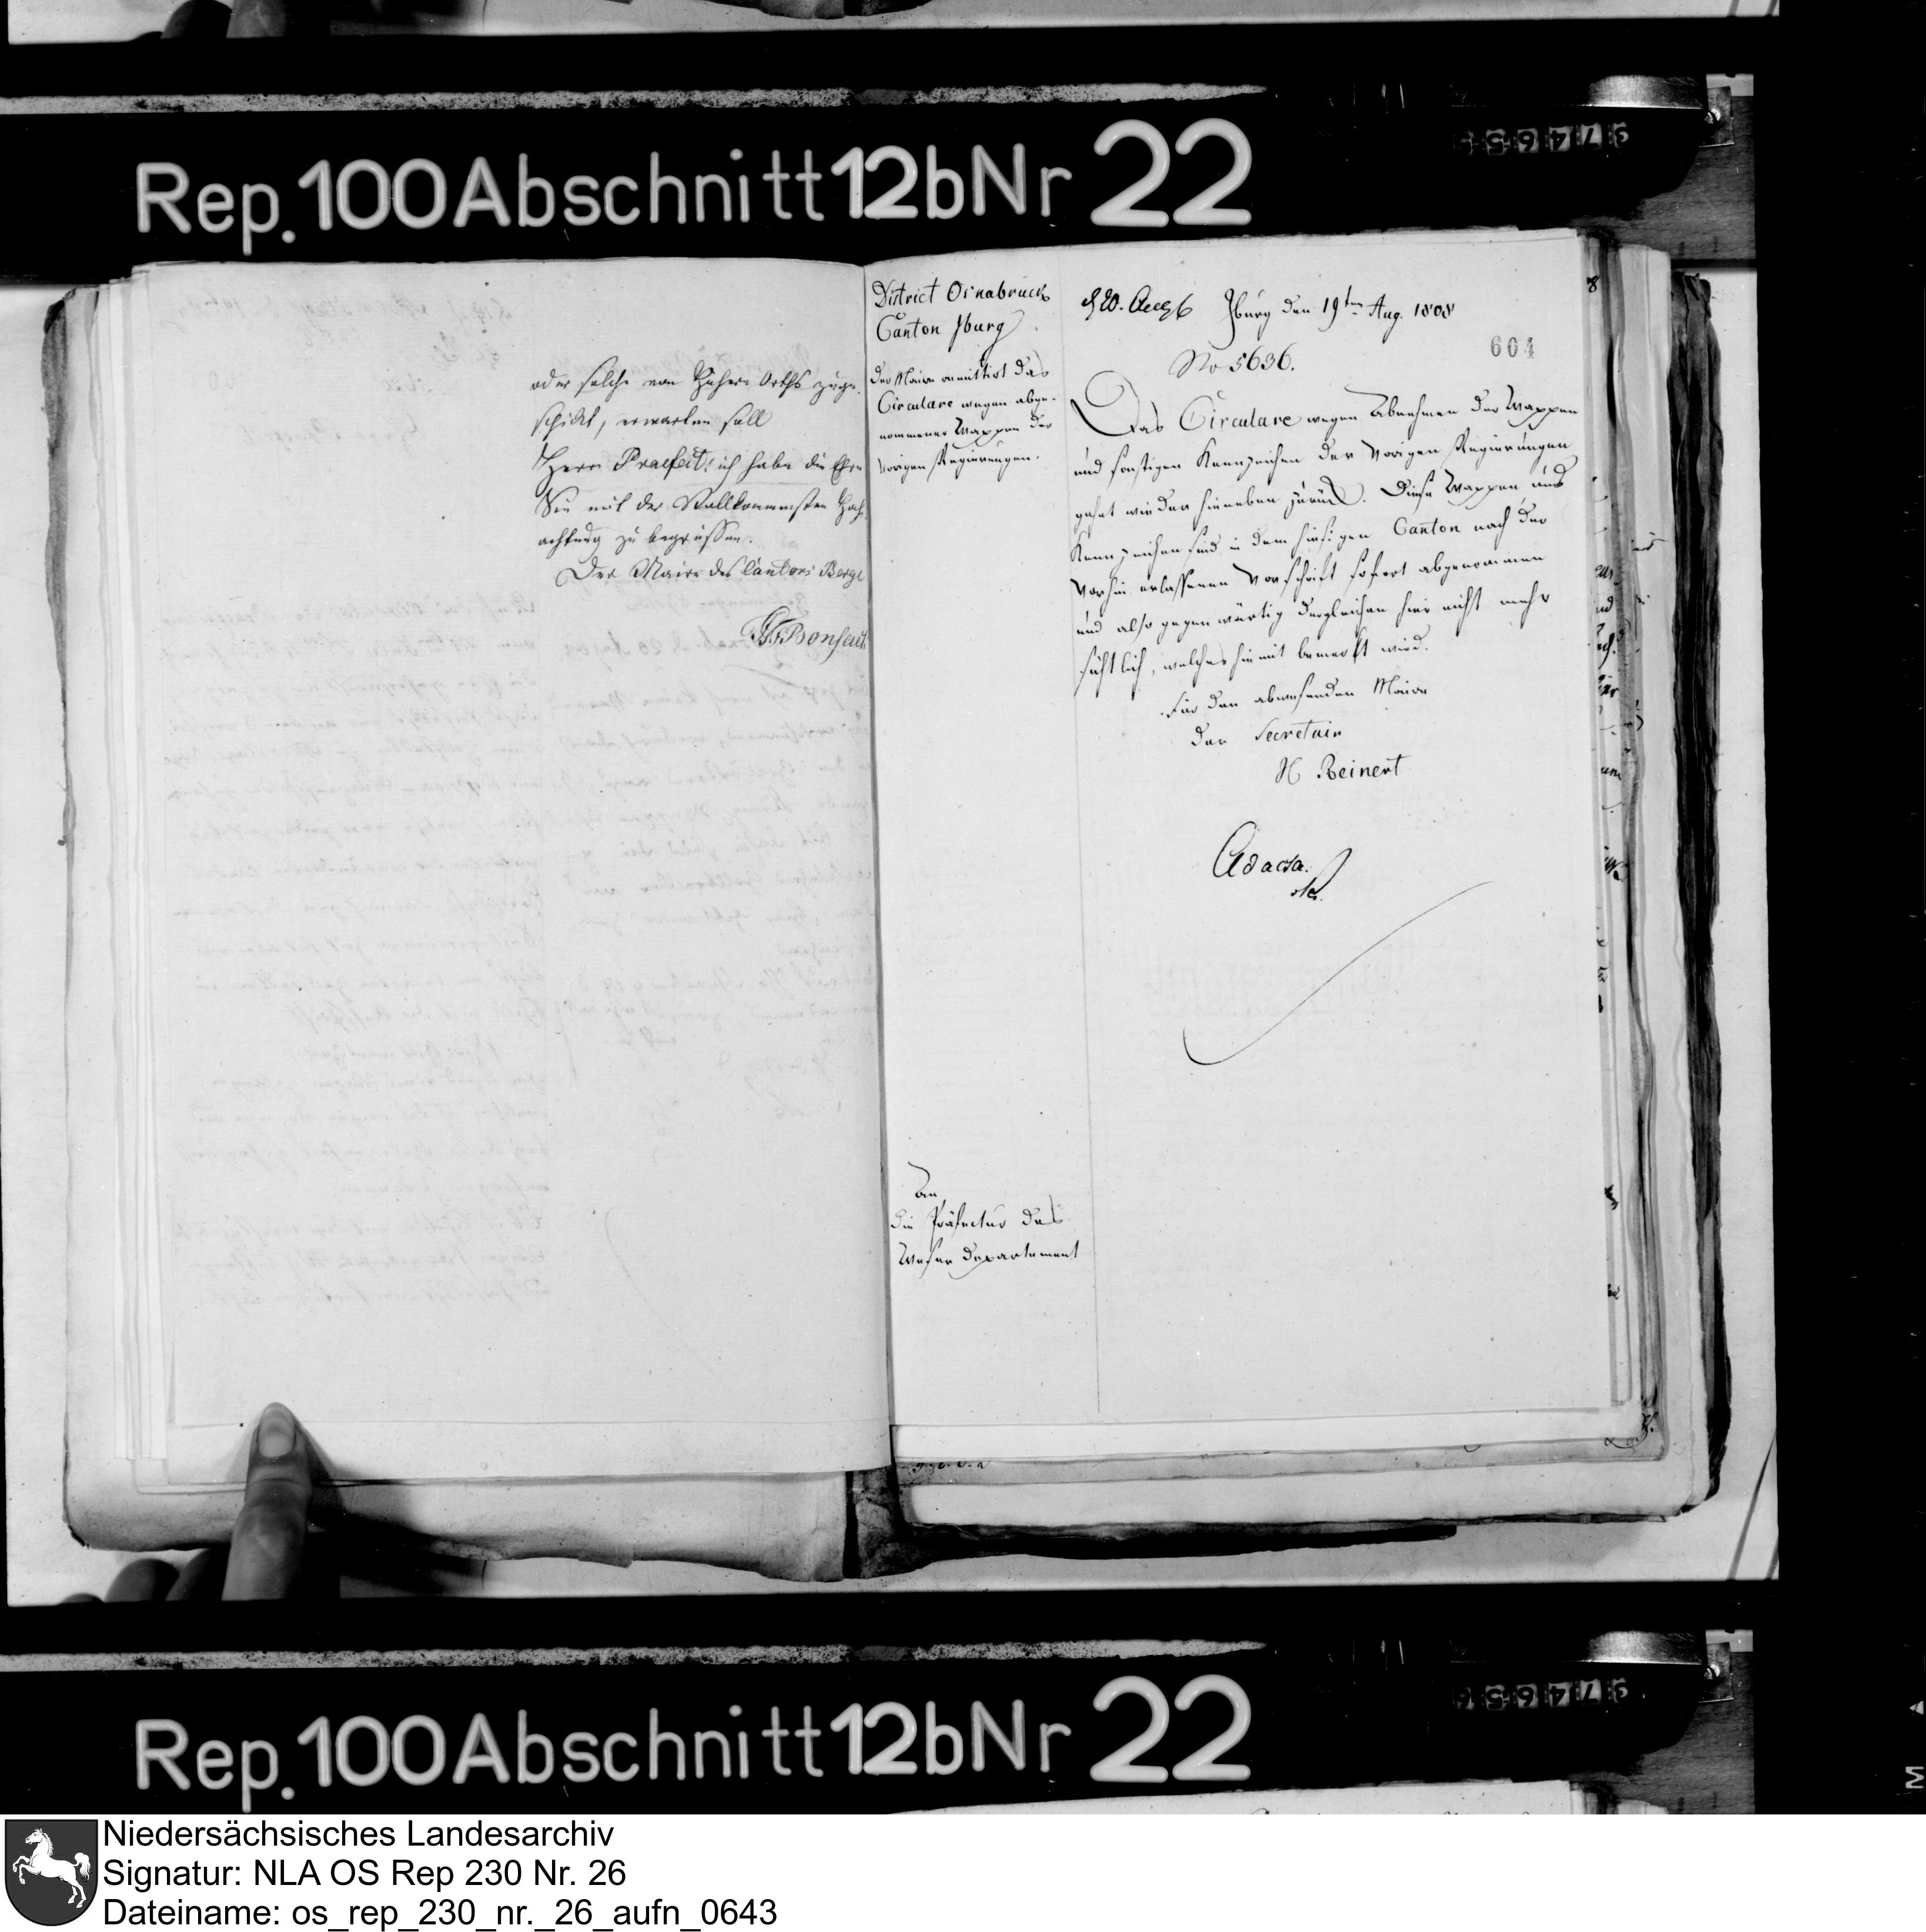 Rep. 100 Abschnitt 12b Nr 22
oder solche von Höhern Orths zuge-
schickt, erwarten soll
Herr Praefect! ich habe die Ehre
Sie mit der Vollkommensten Hoch-
achtung zu begrüssen.
Der Maire des Cantons Berge
District Osnabrück
Canton Iburg
Der Maire remittirt das
Circulare wegen abge-
nommener Wappen der
vorigen Regierungen.
An
die Präfectur des
Weser Departement
Iburg den 19ten Aug. 1808
604
No 5636.
Das Circulare wegen Abnehmen der Wappen
und sonstigen Kennzeichen der vorigen Regierungen
gehet wieder hieneben zurück. Diese Wappen und
Kennzeichen sind in dem hiesigen Canton nach der
vorhin erlassenen Vorschrift sofort abgenommen
und also gegenwärtig dergleichen hier nicht mehr
sichtlich, welches hiemit bemerkt wird.
Für den abwesenden Maire
der Secretair
H Beinert
Ad acta.
Rep. 100 Abschnitt 12b Nr 22
Niedersächsisches Landesarchiv
Signatur: NLA OS Rep 230 Nr. 26
Dateiname: os_rep_230_nr._26_aufn_0643